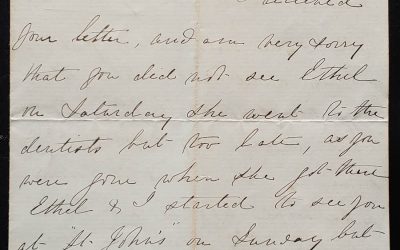 received
your letter, and am very sorry
that you did not see Ethel
on Saturday she went to the
dentists but too late, as you
were gone when she got there
Ethel & I started to see you
at "St. John's" on Sunday but